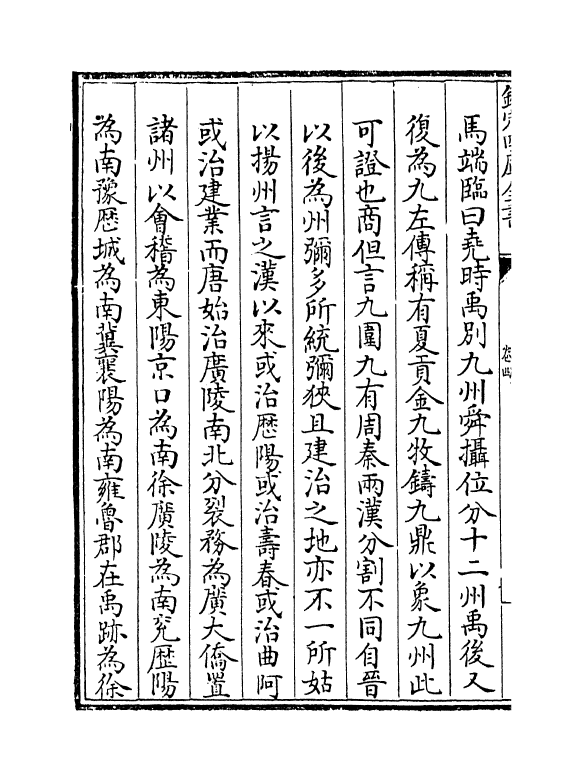 馬端臨曰堯時禹別九州舜攝位分十二州禹後又
復為九左傳稱有夏貢金九牧鑄九鼎以象九州此
可證也商但言九圍九有周秦兩漢分割不同自晉
以後為州彌多所統彌狹且建治之地亦不一所姑
以揚州言之漢以來或治歴陽或治壽春或治曲阿
或治建業而唐始治廣陵南北分裂務為廣大僑置
諸州以會稽為東陽京口為南徐廣陵為南兖歴陽
為南豫歴城為南冀襄陽為南雍魯郡在禹跡為徐